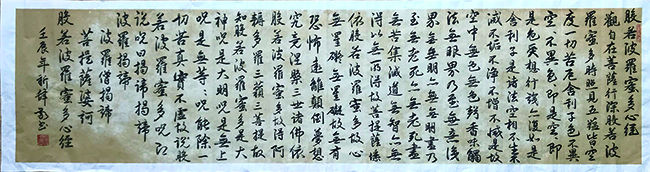 般若波羅蜜多心經
觀自在菩薩行深般若波
羅蜜多時照見五蘊皆空
度一切苦厄舍利子色不異
空空不異色色即是空空即
是色受想行識亦復如是
舍利子是諸法空相不生不
滅不垢不淨不增不減是故
空中無色無聲香味觸
法無眼界乃至無意識
界無無明亦無無明盡乃
至無老死亦無老死盡
無苦集滅道無智亦無
得以無所得故菩提薩埵
依般若波羅蜜多故心
無罣礙無罣礙故無有
恐怖遠離顛倒夢想
究竟涅槃三世諸佛依
般若波羅蜜多故得阿
耨多羅三藐三菩提故
知般若波羅蜜多是大
神咒是大明咒是無上
咒是無等等咒能除一
切苦真實不虛故說般
若波羅蜜多咒即
說咒曰揭諦揭諦
波羅揭諦
波羅僧揭諦
菩提薩婆訶
般若波羅蜜多心經
壬辰年